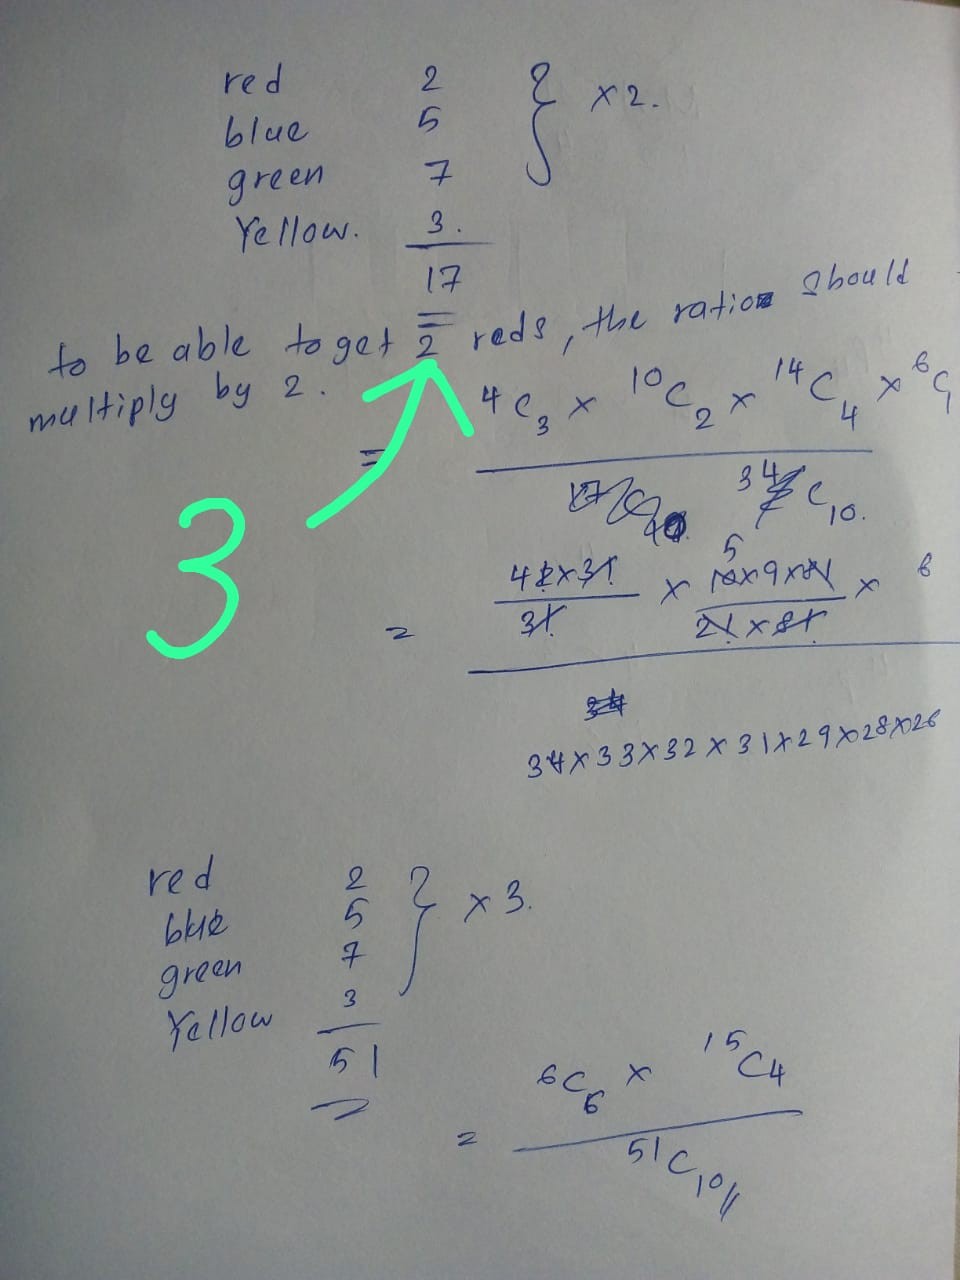 red 2
blue 5 } × 2.
green 7
Yellow. 3.
17
to be able to get 2 reds, the ratio should
multiply by 2.
3
= ⁴C₃ × ¹⁰C₂ × ¹⁴C₄ × ⁶C₁
³⁴C₁₀.
= 4 × 3! / 3! × 5 10 × 9 × 8! / 2! × 8! × 6
34 × 33 × 32 × 31 × 29 × 28 × 26
red 2
blue 5 } × 3.
green 7
Yellow 3
51
= ⁶C₆ × ¹⁵C₄
⁵¹C₁₀